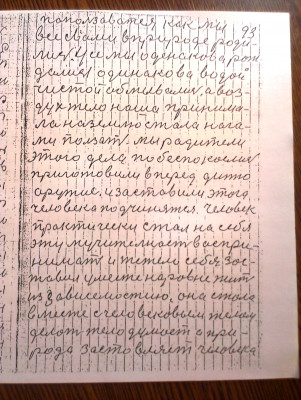 пользоваться как мы 93
все сами в природе роди
лися и мы оденакова рож
дались одинакова водой
чистой обмывались а воз
дух тело наша принима
ла на землю стала нага
ми ползат мы радители
этого дела побеспокоились
приготовили вперед дитю
орутие и заставили этого
человека подчинятся. человек
практически стал на себя
эту мучителност воспри
нимат и тепери себя зас
тавил уместе наровне жит
из зависемостию, она стала
вместе с человековым телом
делат тело думает а при
рода заставляет человека